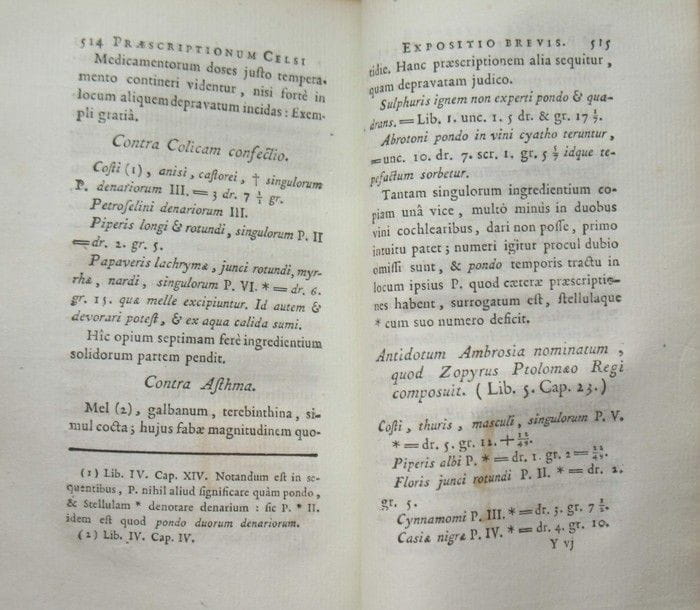 514 PRÆSCRIPTIONUM CELSI
Medicamentorum doses juſto tempera-
mento contineri videntur, niſi fortè in
locum aliquem depravatum incidas: Exem-
pli gratiâ.
Contra Colicam confectio.
Coſti (1), aniſi, caſtorei, † ſingulorum
P. denariorum III. = 3 dr. 7 1/2 gr.
Petroſelini denariorum III.
Piperis longi & rotundi, ſingulorum P. II
= dr. 2. gr. 5.
Papaveris lachrymæ, junci rotundi, myr-
rhæ, nardi, ſingulorum P. VI. * = dr. 6.
gr. 15. quæ melle excipiuntur. Id autem &
devorari poteſt, & ex aqua calida ſumi.
Hîc opium ſeptimam ferè ingredientium
ſolidorum partem pendit.
Contra Aſthma.
Mel (2), galbanum, terebinthina, ſi-
mul cocta; hujus fabæ magnitudinem quo-
(1) Lib. IV. Cap. XIV. Notandum eſt in ſe-
quentibus, P. nihil aliud ſignificare quàm pondo,
& Stellulam * denotare denarium: ſic P. * II.
idem eſt quod pondo duorum denariorum.
(2) Lib. IV. Cap. IV.
EXPOSITIO BREVIS. 515
tidie. Hanc præſcriptionem alia ſequitur,
quam depravatam judico.
Sulphuris ignem non experti pondo & qua-
drans. = Lib. 1. unc. 1. 5 dr. & gr. 17 1/2.
Abrotoni pondo in vini cyatho teruntur,
= unc. 10. dr. 7. ſcr. 1. gr. 5 1/2 idque te-
pefactum ſorbetur.
Tantam ſingulorum ingredientium co-
piam unâ vice, multò minùs in duobus
vini cochlearibus, dari non poſſe, primo
intuitu patet; numeri igitur procul dubio
omiſſi ſunt, & pondo temporis tractu in
locum ipſius P. quod cæteræ præſcriptio-
nes habent, ſurrogatum eſt, ſtellulaque
* cum ſuo numero deficit.
Antidotum Ambroſia nominatum,
quod Zopyrus Ptolomæo Regi
compoſuit. (Lib. 5. Cap. 23.)
Coſti, thuris, maſculi, ſingulorum P. V.
* = dr. 5. gr. 12. + 12/49.
Piperis albi P. * = dr. 1. gr. 2 = 22/49.
Floris junci rotundi P. II. * = dr. 2.
gr. 5.
Cynnamomi P. III. * = dr. 3. gr. 7 1/2.
Caſiæ nigræ P. IV. * = dr. 4. gr. 10.
Y vj